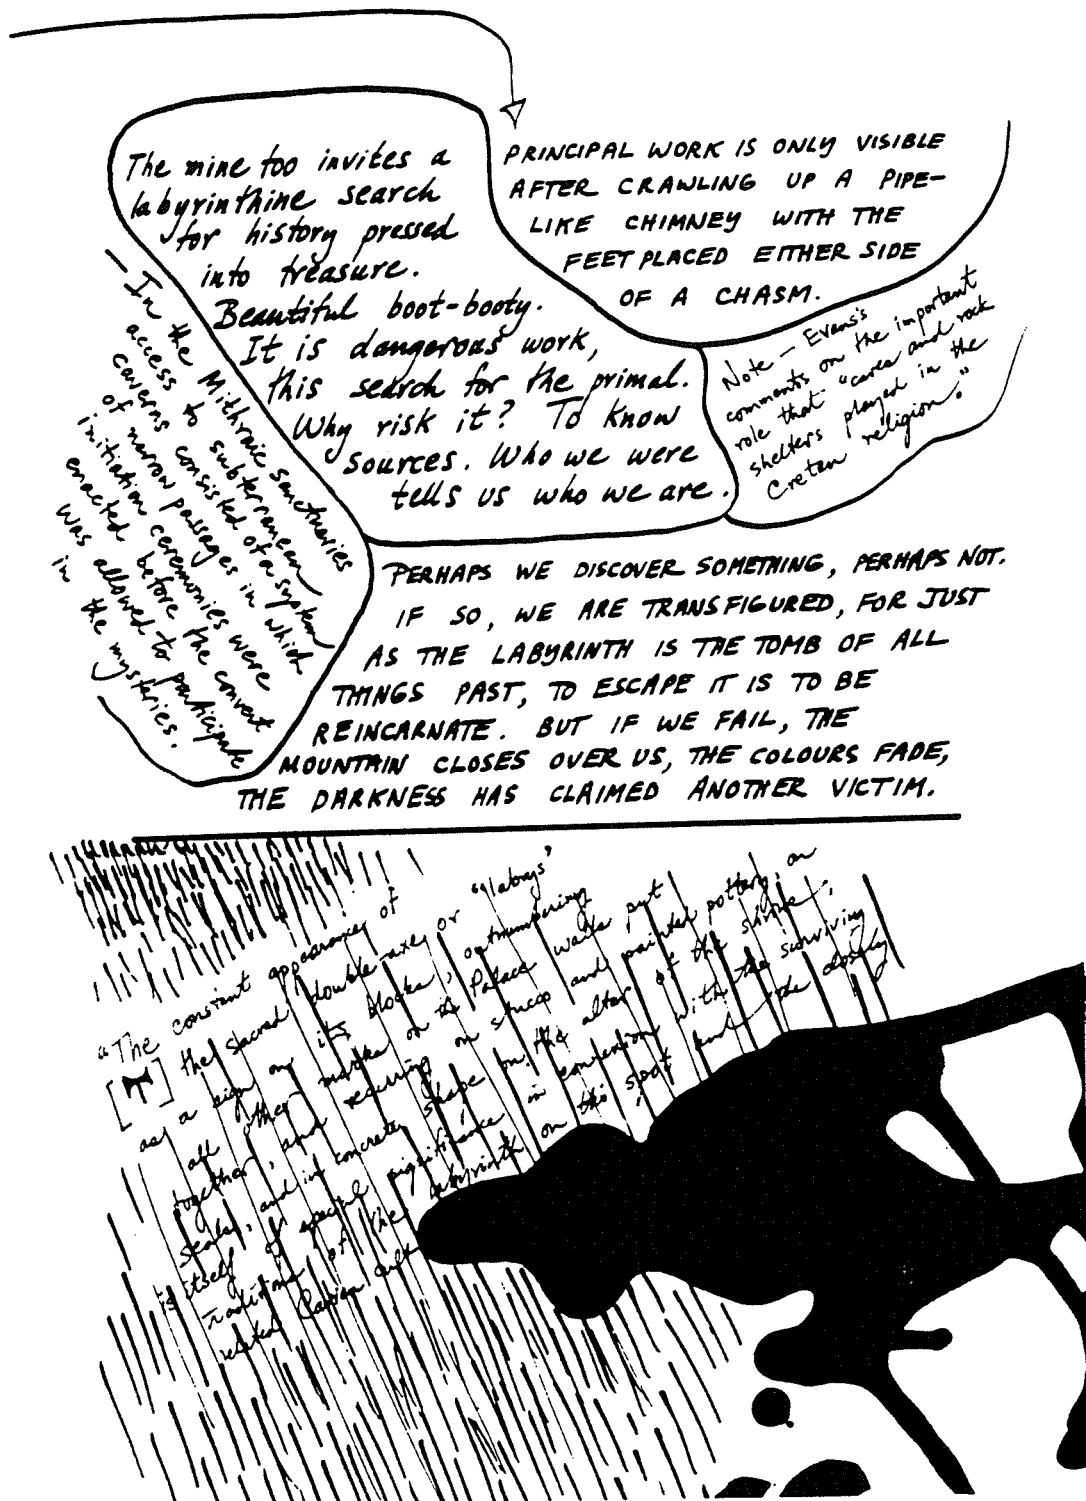 The mine too invites a
labyrinthine search
for history pressed
into treasure.
Beautiful boot-booty.
It is dangerous work,
this search for the primal.
Why risk it? To know
sources. Who we were
tells us who we are.
PRINCIPAL WORK IS ONLY VISIBLE
AFTER CRAWLING UP A PIPE-
LIKE CHIMNEY WITH THE
FEET PLACED EITHER SIDE
OF A CHASM.
Note – Evans's
comments on the important
role that "caves and rock
shelters played in the
Cretan religion."
– In the Mithraic sanctuaries
access to subterranean
caverns consisted of a system
of narrow passages in which
initiation ceremonies were
enacted before the convert
was allowed to participate
in the mysteries.
PERHAPS WE DISCOVER SOMETHING, PERHAPS NOT.
IF SO, WE ARE TRANSFIGURED, FOR JUST
AS THE LABYRINTH IS THE TOMB OF ALL
THINGS PAST, TO ESCAPE IT IS TO BE
REINCARNATE. BUT IF WE FAIL, THE
MOUNTAIN CLOSES OVER US, THE COLOURS FADE,
THE DARKNESS HAS CLAIMED ANOTHER VICTIM.
"The constant appearance of
the sacred double axe or "labrys"
as a sign on its blocks, outnumbering
all other marks on the Palace walls put
together, and recurring on stucco and painted pottery, on
seals, and in concrete shape on the altar of the shrine,
is itself of special significance in connexion with the surviving
traditions of the labyrinth on this spot and the closely
related Carian cult